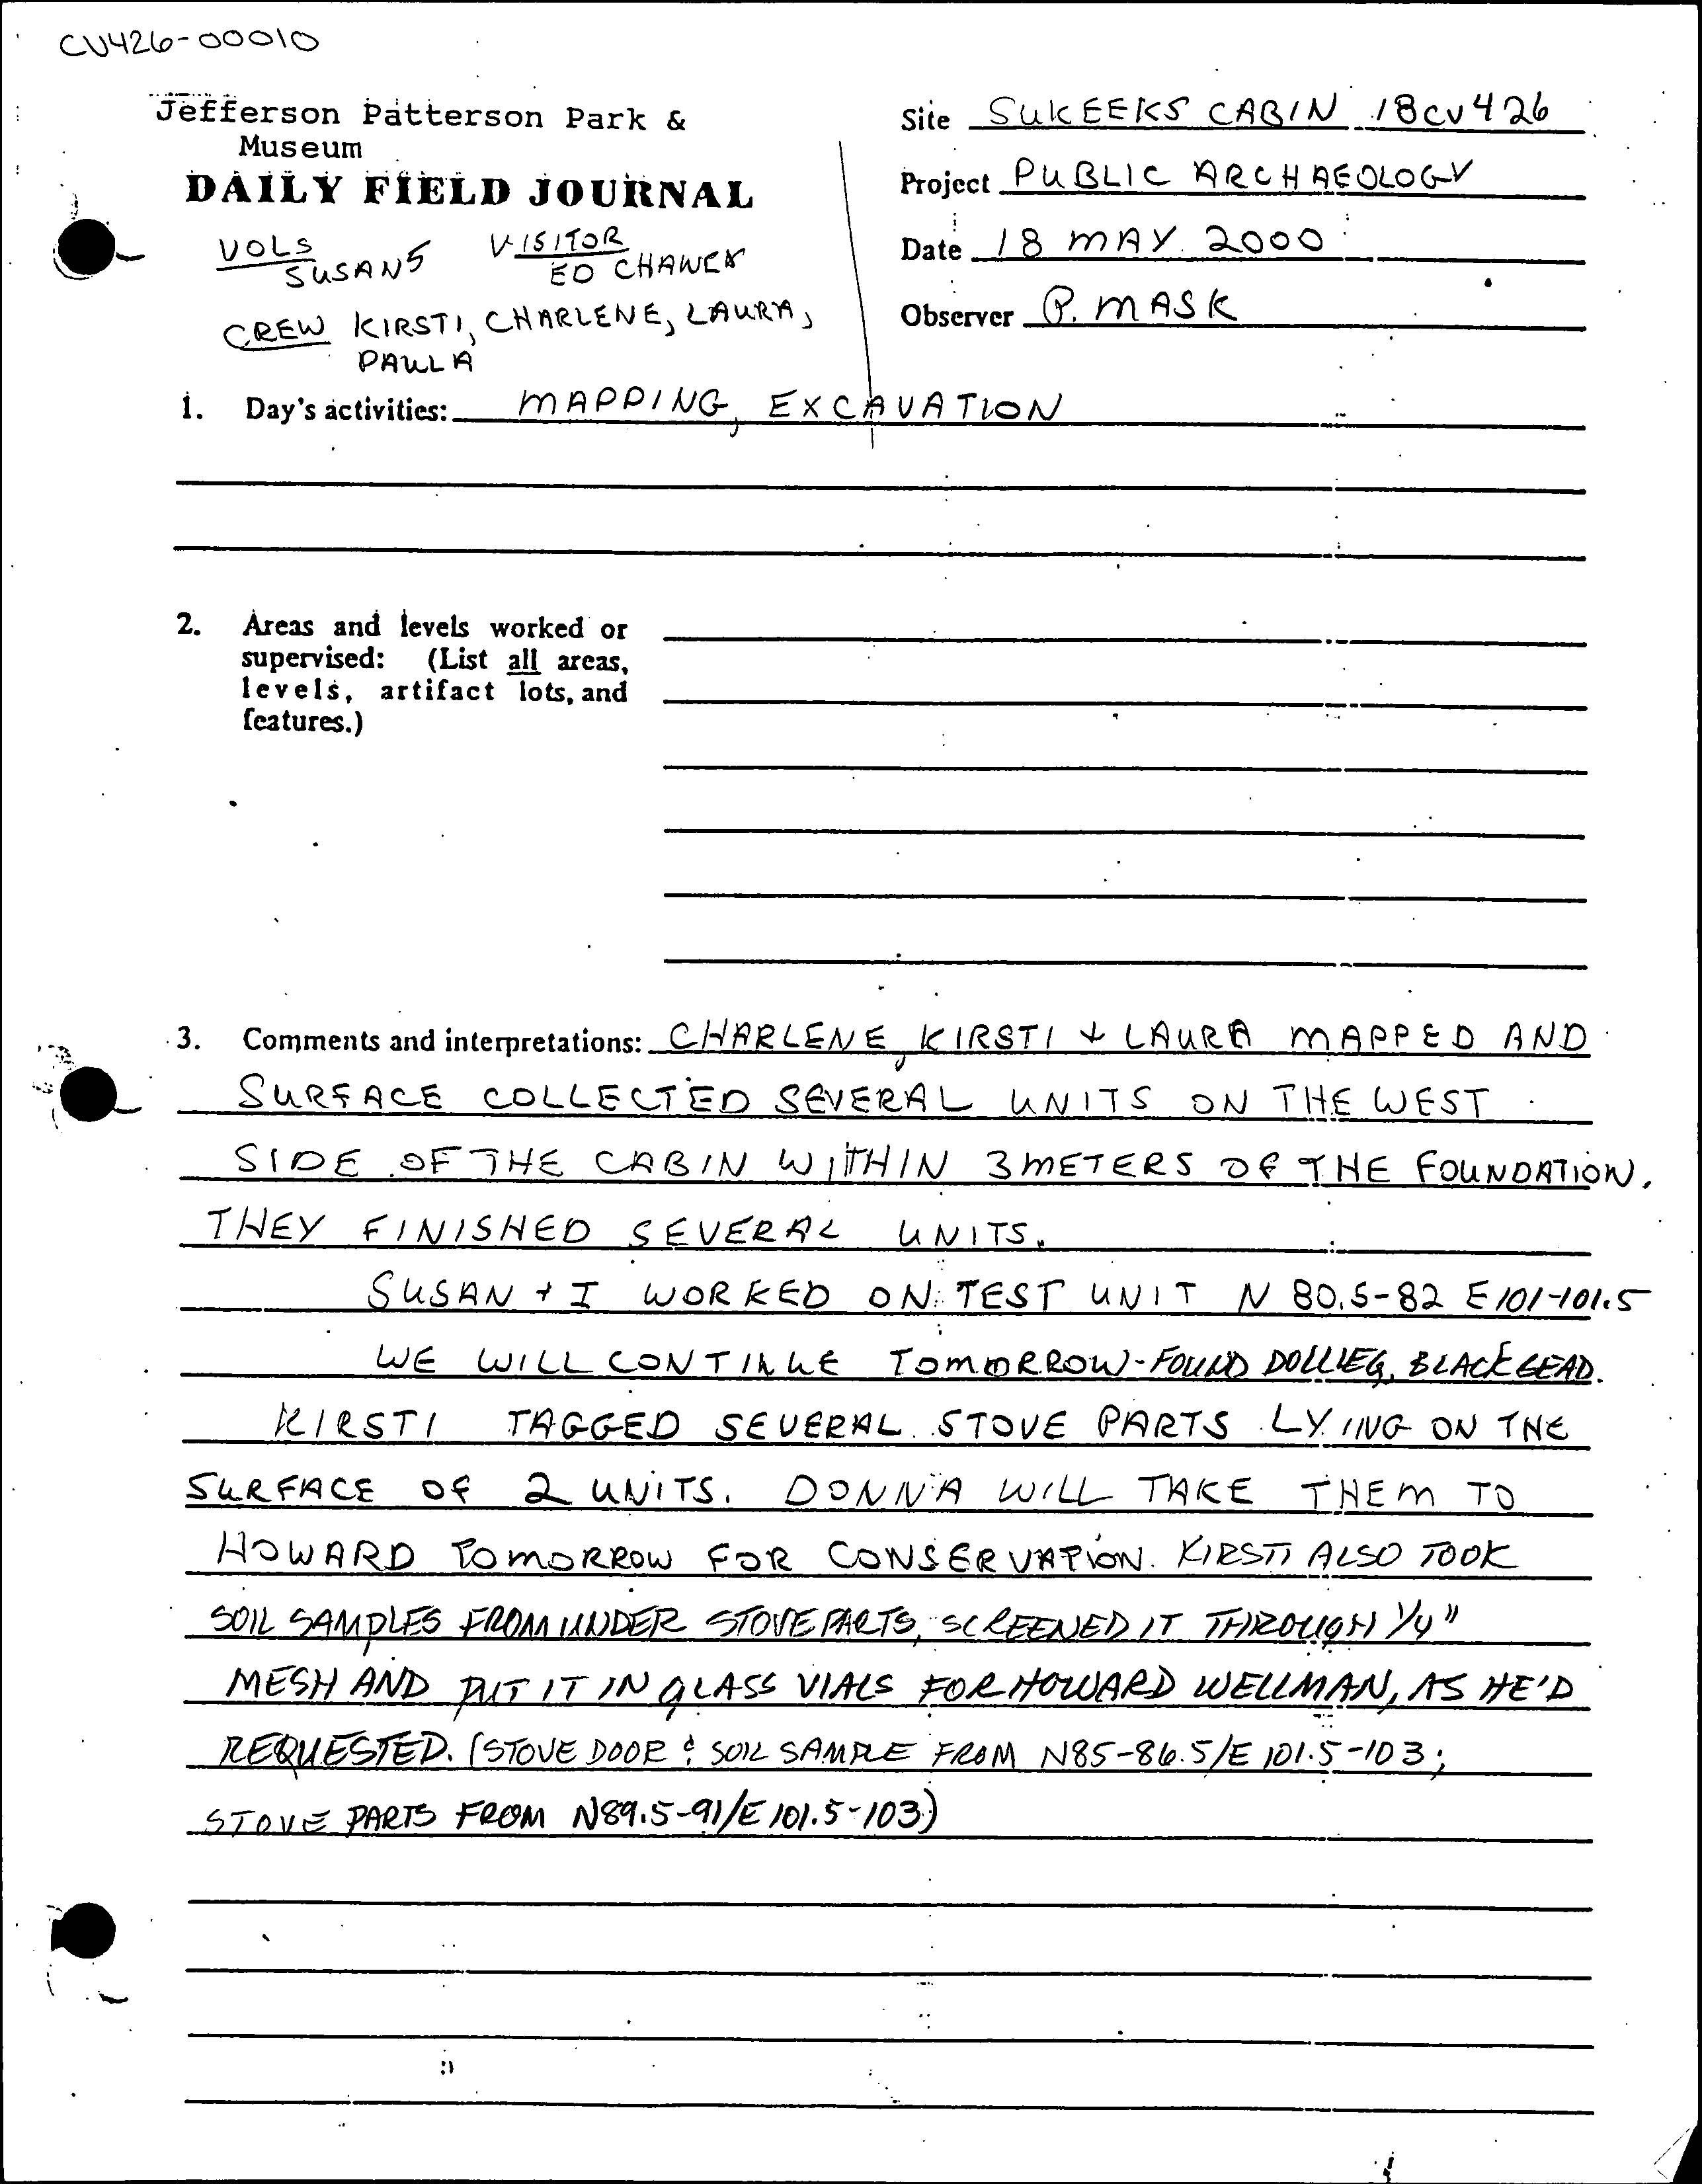 CV426-00010
Jefferson Patterson Park &
Museum
DAILY FIELD JOURNAL
VOLS
SUSAN S
VISITOR
ED
CREW KIRSTI, CHARLENE, LAURA,
PAULA
Site SUKEEKS CABIN 18CV426
Project PUBLIC ARCHAEOLOGY
Date 18 MAY 2000
Observer P. MASK
1. Day's activities: MAPPING, EXCAVATION
2. Areas and levels worked or
supervised: (List all areas,
levels, artifact lots, and
features.)
3. Comments and interpretations: CHARLENE, KIRSTI + LAURA MAPPED AND
SURFACE COLLECTED SEVERAL UNITS ON THE WEST
SIDE OF THE CABIN WITHIN 3 METERS OF THE FOUNDATION.
THEY FINISHED SEVERAL UNITS.
SUSAN + I WORKED ON TEST UNIT N 80.5-82 E 101-101.5
WE WILL CONTINUE TOMORROW-FOUND DOLL LEG, BLACK BEAD.
KIRSTI TAGGED SEVERAL STOVE PARTS LYING ON THE
SURFACE OF 2 UNITS. DONNA WILL TAKE THEM TO
HOWARD TOMORROW FOR CONSERVATION. KIRSTI ALSO TOOK
SOIL SAMPLES FROM UNDER STOVE PARTS, SCREENED IT THROUGH 1/4"
MESH AND PUT IT IN GLASS VIALS FOR HOWARD WELLMAN, AS HE'D
REQUESTED. (STOVE DOOR & SOIL SAMPLE FROM N85-86.5/E 101.5-103;
STOVE PARTS FROM N89.5-91/E 101.5-103)